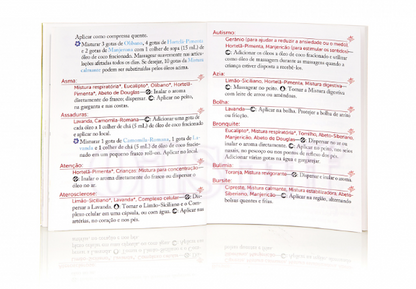 Aplicar como compressa quente.
Misturar 3 gotas de Olíbano, 4 gotas de Hortelã-Pimenta
e 2 gotas de Manjerona com 1 colher de sopa (15 mL) de
óleo de coco fracionado. Massagear suavemente nas articu-
lações afetadas todos os dias. Se desejar, 10 gotas da Mistura
calmante podem ser substituídas pelos óleos acima.
Asma:
Mistura respiratória*, Eucalipto*, Olíbano*, Hortelã-
Pimenta*, Abeto de Douglas— Inalar o aroma
diretamente do frasco; dispersar. Aplicar no peito,
na garganta e nas costas.
Assaduras:
Lavanda, Camomila-Romana— Adicionar uma gota de
cada óleo a 1 colher de chá (5 mL) de óleo de coco fracionado
e aplicar no local.
Misturar 1 gota de Camomila-Romana, 1 gota de La-
vanda e 1 colher de chá (5 mL) de óleo de coco fracio-
nado em um pequeno frasco roll-on. Aplicar no local.
Atenção:
Hortelã-Pimenta*, Crianças: Mistura para concentração—
Inalar o aroma diretamente do frasco ou dispersar o
óleo no ar.
Aterosclerose:
Limão-Siciliano*, Lavanda*, Complexo celular— Dis-
persar a Lavanda. Tomar o Limão-Siciliano e o Com-
plexo celular em uma cápsula, ou com água. Aplicar nas
artérias, no coração e nos pés.
Autismo:
Gerânio (para ajudar a reduzir a ansiedade ou o medo),
Hortelã-Pimenta, Manjericão (para estimular os sentidos)—
Massagear diluído em óleo de coco fracionado e utilizar
como óleo de massagem durante as massagens quando a
criança estiver disposta a recebê-los.
Azia:
Limão-Siciliano, Hortelã-Pimenta, Mistura digestiva—
Aplicar no peito. Tomar a Mistura digestiva
com leite de arroz ou amêndoas.
Bolha:
Lavanda— Aplicar na bolha. Pompor a bolha antes
da fricção.
Bronquite:
Eucalipto*, Mistura respiratória, Tomilho, Abeto-Siberiano,
Manjericão, Abeto de Douglas— Dispersar no ar
Adicionar várias gotas na água e gargarejar.
Bulimia:
Toranja, Mistura revigorante— Dispersar e inalar o aroma.
Bursite:
Cipreste, Mistura calmante, Mistura estabilizadora, Abeto-
Siberiano, Manjericão— Aplicar na região, alternando
bolsas quentes e frias.